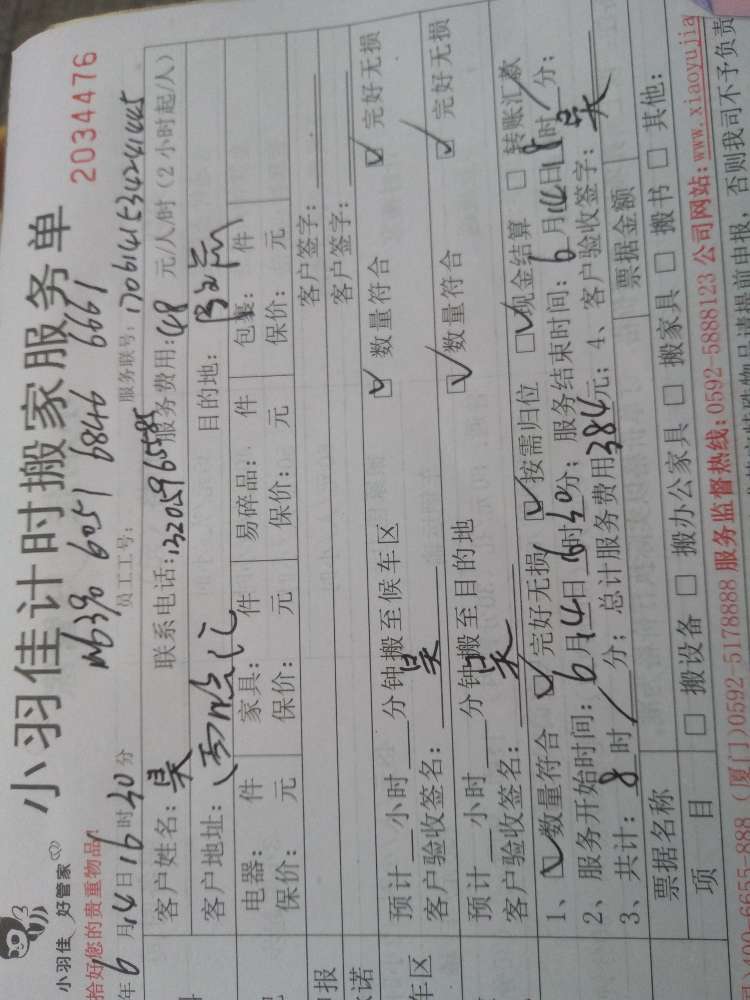 小羽佳 好管家
小羽佳计时搬家服务单
2034476
恰好您的贵重物品!
6051 6846 6661
年6月14日16时30分 员工工号: 服务联号:
客户姓名:吴 联系电话:13205965585 服务费用:48元/人/时(2小时起/人)
客户地址: 目的地:
电器: 件 家具: 件 易碎品: 件 包裹: 件
保价: 元 保价: 元 保价: 元 保价: 元
客户签字:
客户签字:
预计 小时 分钟搬至候车区 ☑ 数量符合 ☑ 完好无损
客户验收签名:吴
预计 小时 分钟搬至目的地 ☑ 数量符合 ☑ 完好无损
客户验收签名:吴
1、☑ 数量符合 ☑ 完好无损 ☑ 按需归位 ☑ 现金结算 □ 转账汇款
2、服务开始时间:6月14日16时30分; 服务结束时间:6月14日 时 分;
3、共计:8时/分; 总计服务费用384元; 4、客户验收签字:吴
票据名称 票据金额
项 目 □ 搬设备 □ 搬办公家具 □ 搬家具 □ 搬书 □ 其他:
400-6655-888 (厦门)0592-5178888 服务监督热线:0592-5888123 公司网站:www.xiaoyujia
物品请提前申报,否则我司不予负责